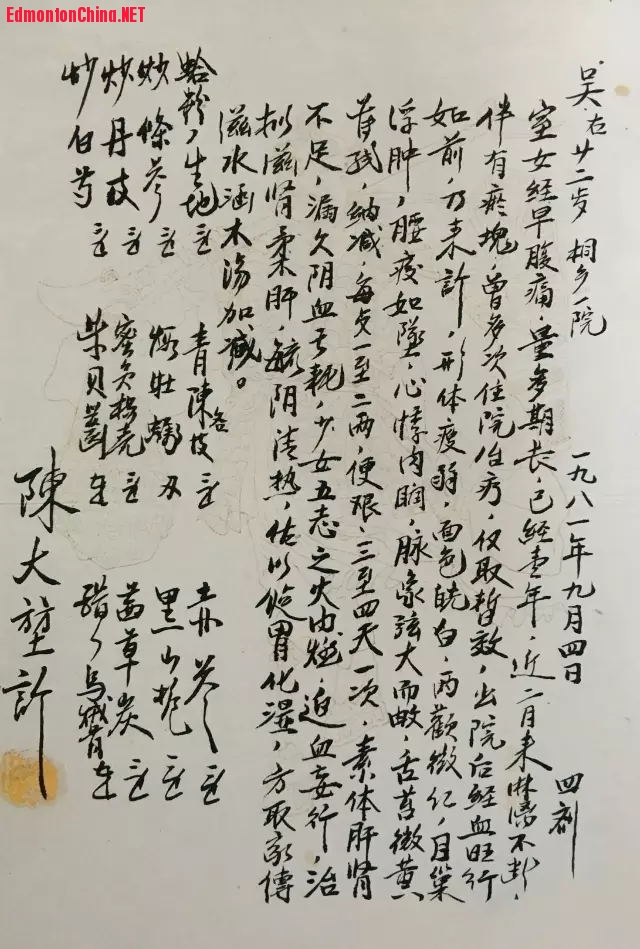 EdmontonChina.NET
吴右 廿二岁 桐乡一院 一九八一年九月四日 四剂
室女经早腹痛，量多期长，已经壹年，近二月来淋漓不断，
伴有瘀块，曾多次住院治疗，仅取暂效，出院后经血旺行
如前，乃来诊，形体疲弱，面色㿠白，两颧微红，目窠
浮肿，腰疫如坠，心悸肉瞤，脉象弦大而芤，舌苔微黄
苔残，纳减，每天一至二两，便艰，三至四天一次，素体肝肾
不足，漏久阴血亏耗，少女五志之火内燃，迫血妄行，治
拟滋肾柔肝，毓阴清热，佐以 胃化湿，方取家传
滋水涵木汤加减。
蛤粉 生地 青陈 各 赤芩
炒條参 煅牡蛎 黑山栀
炒丹皮 蜜炙 壳 茜草炭
炒白芍 紫贝齿 醋 乌贼骨
陳大堃 诊